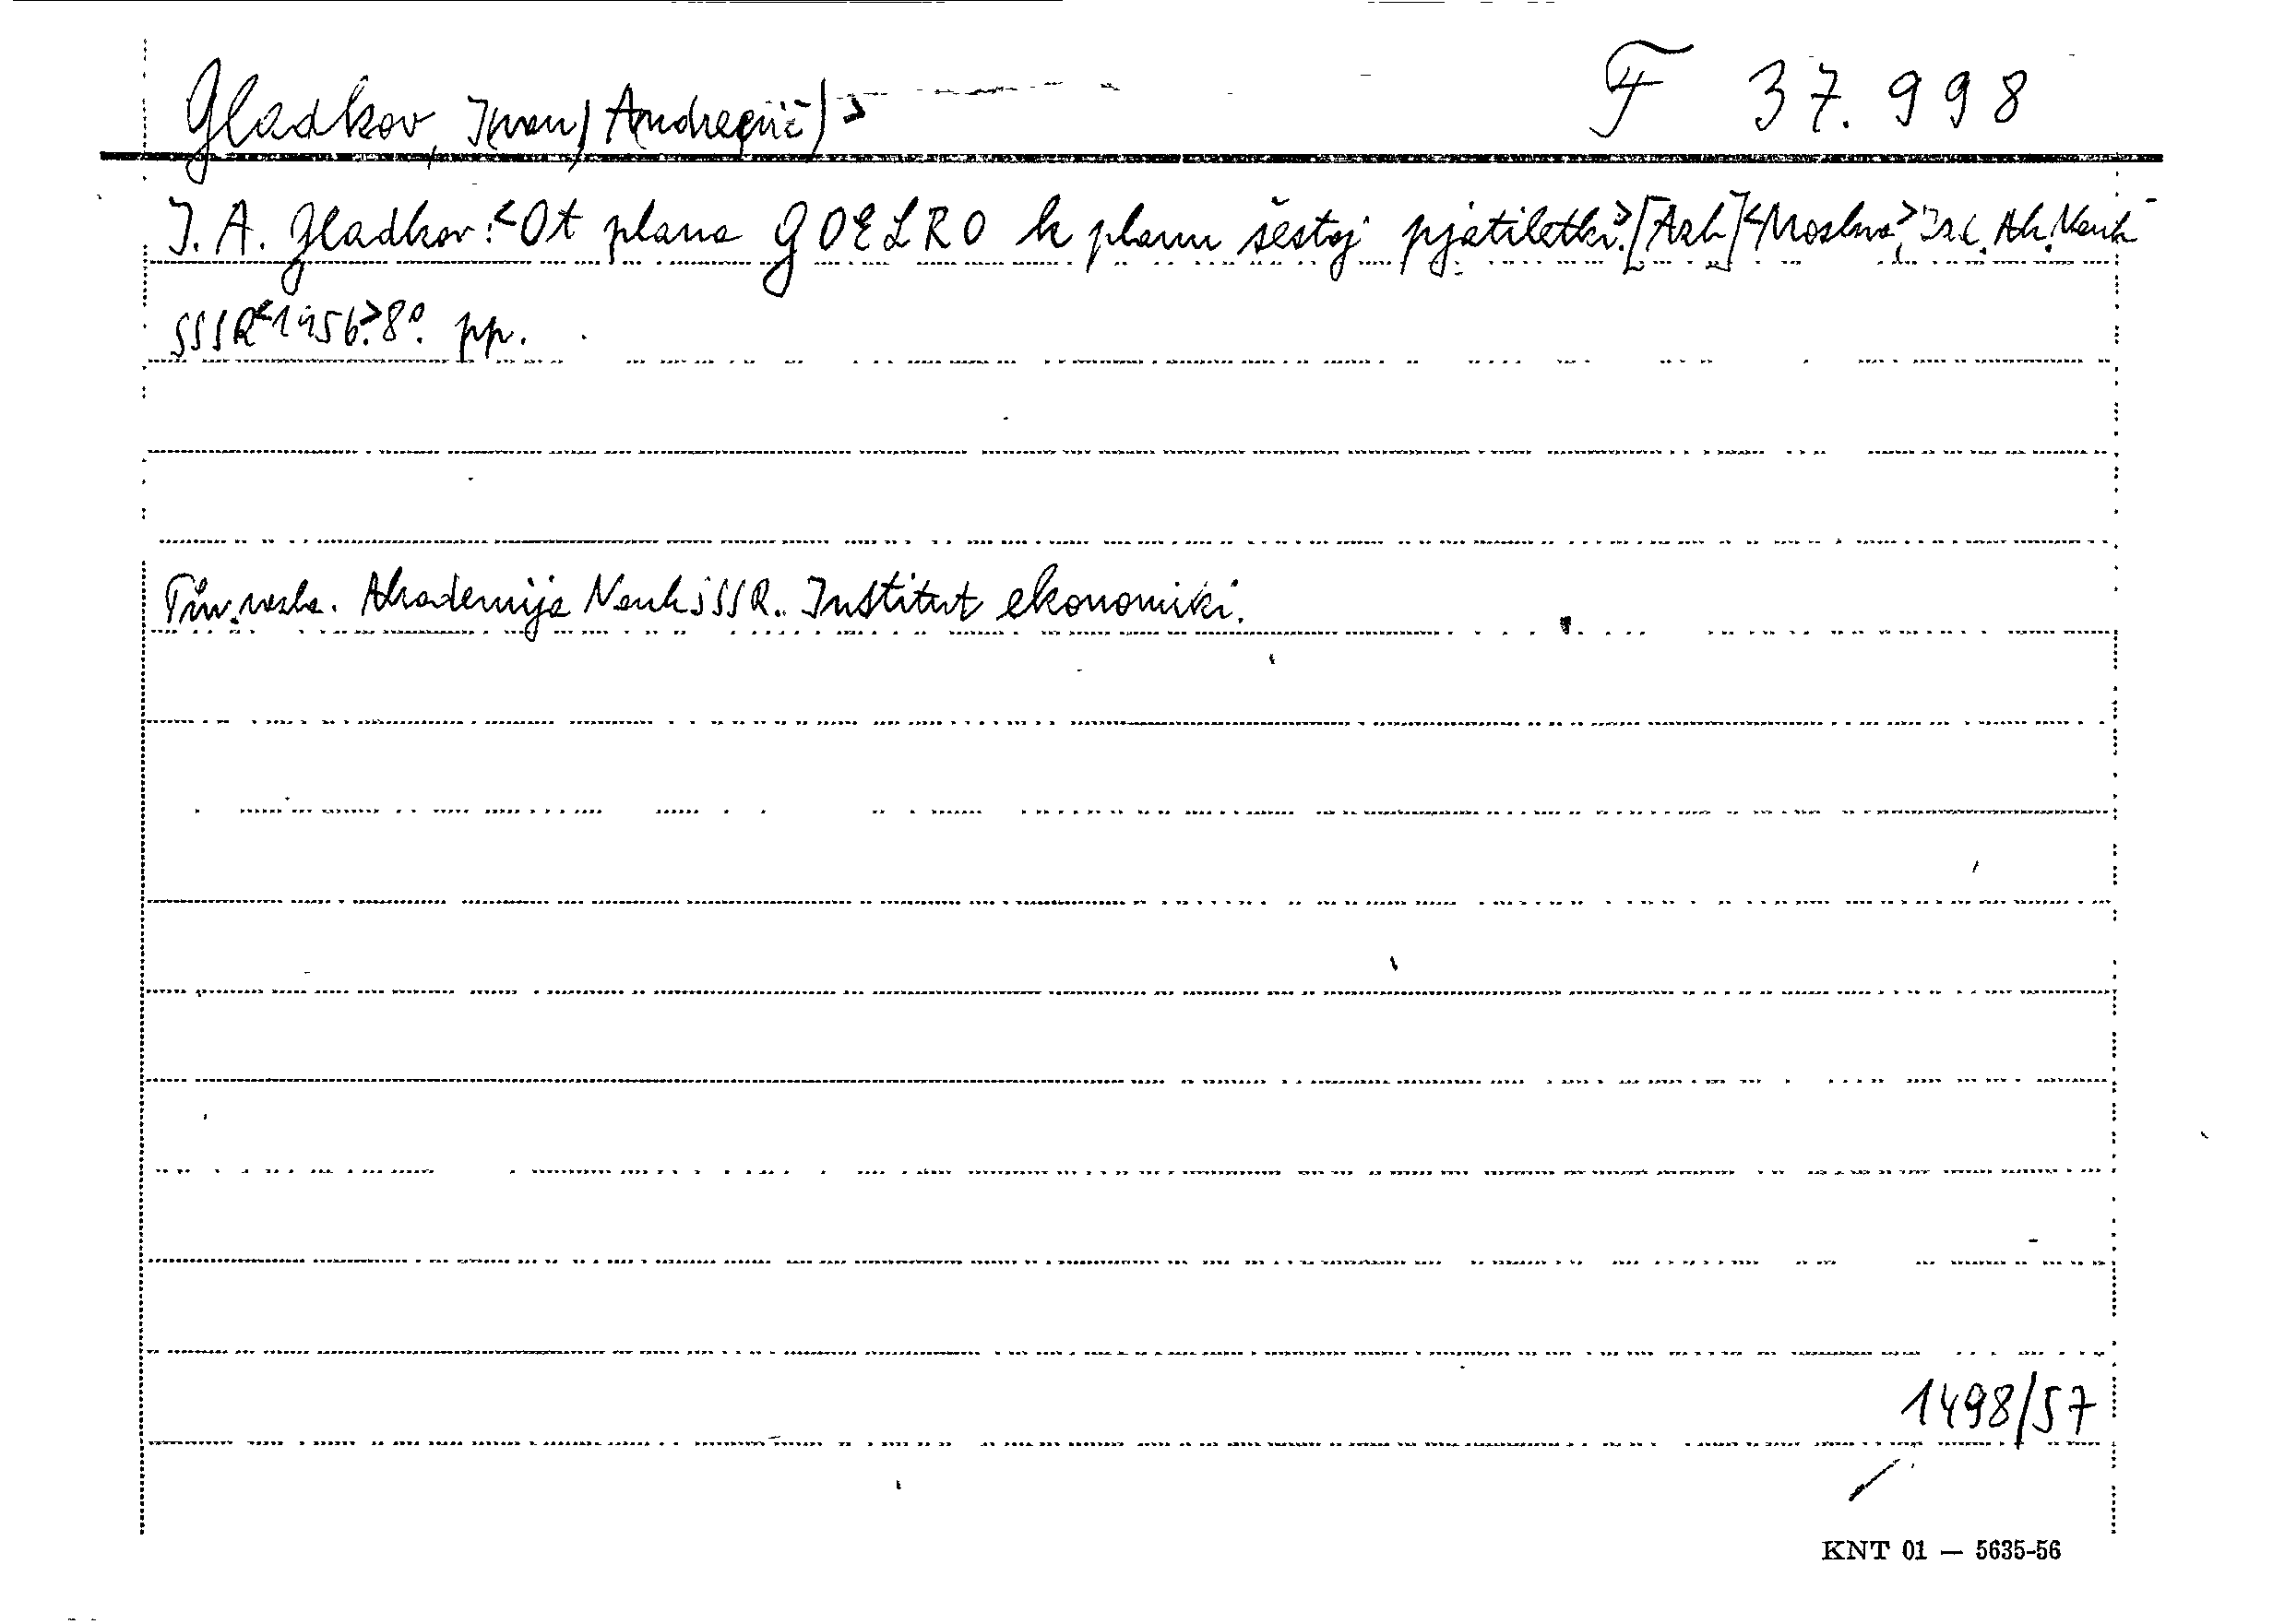 Gladkov, Ivan / Andreevič / >
F 37.998
I. A. Gladkov: <Ot plana GOELRO k planu šestoj pjatiletki.> [Azb] <Moskva,> Izd. Ak. Nauk
SSSR <1956.> 8°. pp.
Akademija Nauk SSSR. Institut ekonomiki.
1498/57
KNT 01 — 5635-56